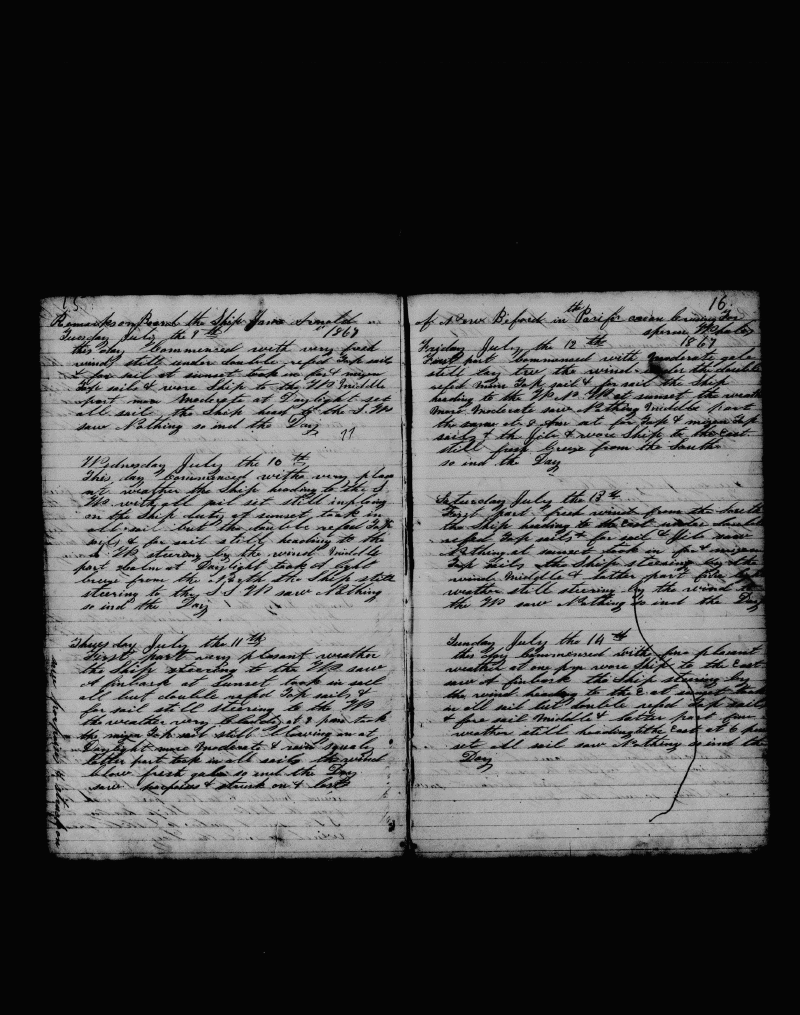 15
Remarks on Board the Ship
Tuesday July the 9th 1867
this day Commensed with very fresh
wind still under double refed Top sails
& for sail at sunset took in for & mizen
Top sails & wore Ship to the W Middle
part more Moderate at Daylight set
all sail the Ship head to the S. W
saw Nothing so ind the Day
Wednesday July the 10th
This day Commensed withe very pleas
ant weather the Ship heading to the S
W with all sail set still
on the Ship duty at sunset took in
all sail but the double refed Top
sails & for sail still heading to the
W steering by the wind Middle
part calm at Daylight took A light
breeze from the North the Ship still
steering to the S. S. W saw Nothing
so ind the Day
Thursday July the 11th
First part very plesant weather
the Ship steering to the W saw
A finback at Sunset took in sail
all but double refed Top sails &
for sail still steering to the W
the weather very at 8 pm took
the mizen Top sail still blowing in at
Daylight more Moderate & rain squaly
latter part took in all sails the wind
blow fresh gales so ind the Day
saw porpoises & struck on & lost
16
of New Beford in th Pacific
sperm Whales
Friday July the 12th 1867
First part Commensed with Moderate gale
still by the wind under the double
refed Top sail & for sail the Ship
heading to the W. N. W at sunset the weath
More Moderate saw Nothing Middle part
the same at set for Top & mizen Top
sails & the Jib & wore Ship to the East
still fresh breeze from the Southe
so ind the Day
Saturday July the 13th
First part fresh wind from the South
the Ship heading to the East under double
refed Top sails & for sail & Jib saw
Nothing at sunset took in for & mizen
Top sails the Ship steering by the
wind Middle & latter part fine
weather still steering by the wind to
the W saw Nothing so ind the Day
Sunday July the 14th
this day Commensed withe fine plesant
weather at one pm wore Ship to the East
saw A finback the Ship steering by
the wind heading to the E at sunset took
in all sail but double refed Top sails
& fore sail Middle & latter part fine
weather still heading to the East at 6
set all sail saw Nothing so ind the
Day